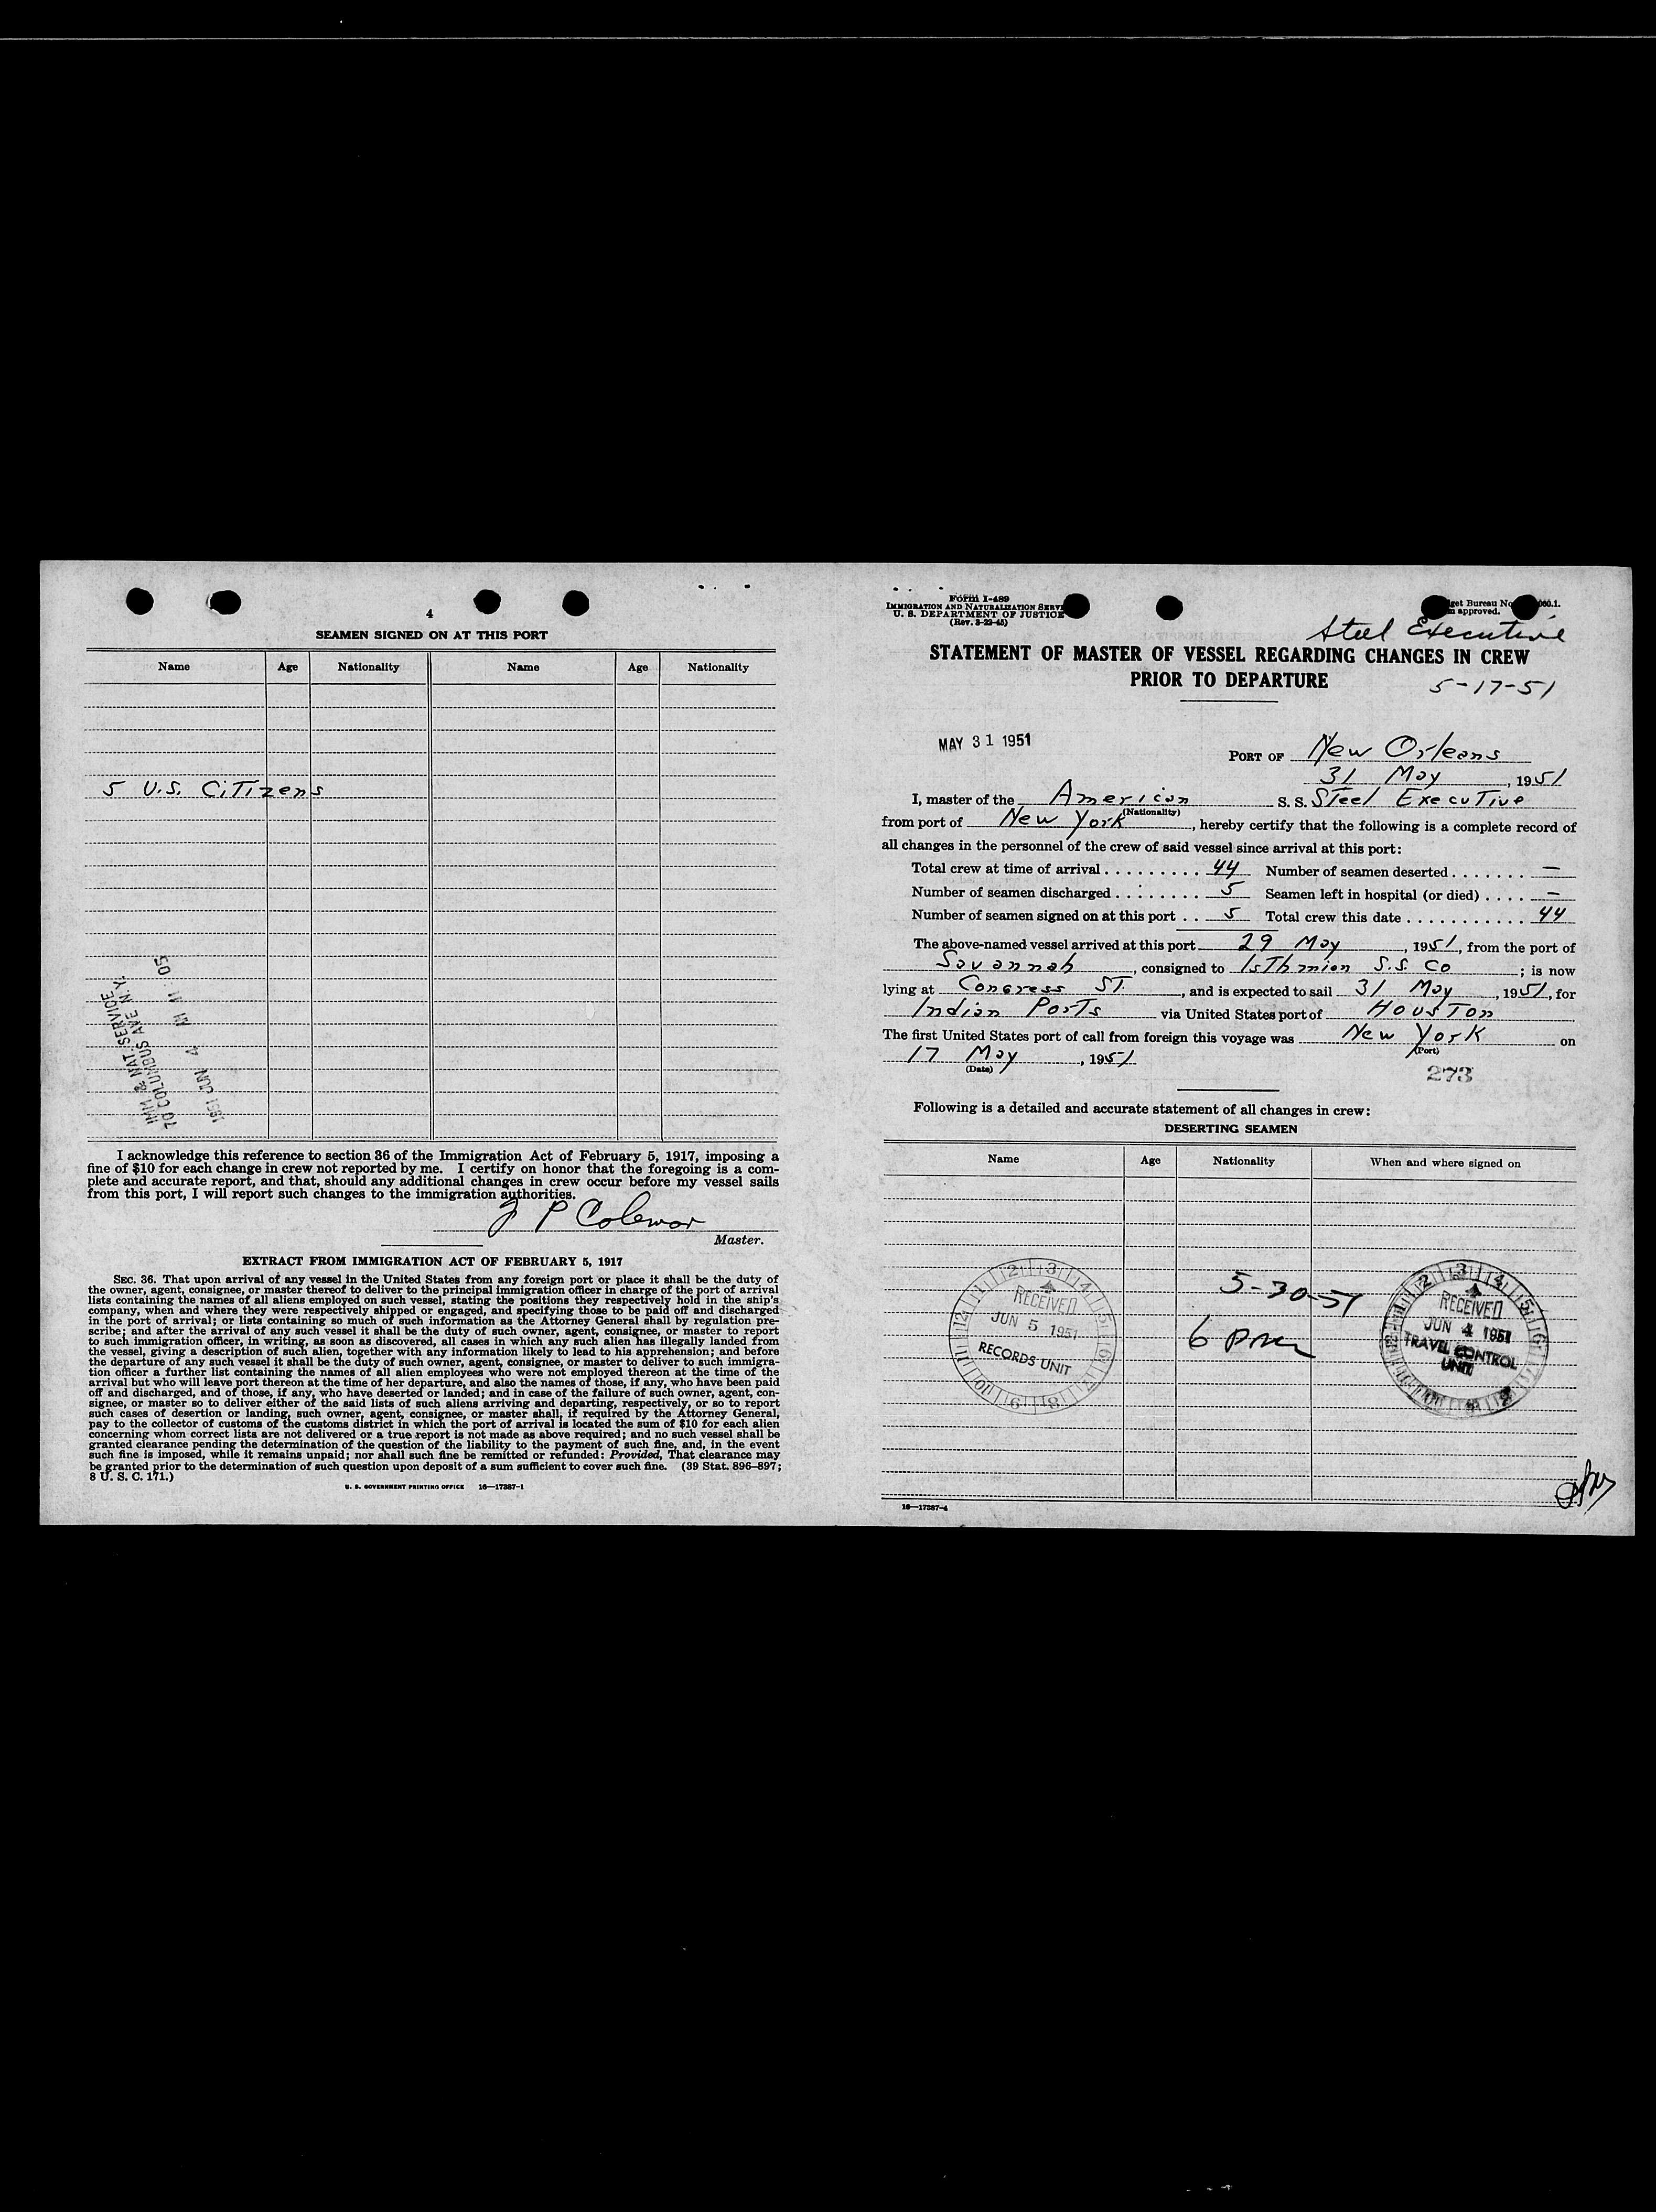 4
SEAMEN SIGNED ON AT THIS PORT
Name Age Nationality Name Age Nationality
5 U.S. CiTizens
IMM & NAT SERVICE
70 COLUMBUS AVE N.Y.
1951 JUN 4 AM 11 05
I acknowledge this reference to section 36 of the Immigration Act of February 5, 1917, imposing a
fine of $10 for each change in crew not reported by me. I certify on honor that the foregoing is a com-
plete and accurate report, and that, should any additional changes in crew occur before my vessel sails
from this port, I will report such changes to the immigration authorities.
J P Coleman
Master.
EXTRACT FROM IMMIGRATION ACT OF FEBRUARY 5, 1917
SEC. 36. That upon arrival of any vessel in the United States from any foreign port or place it shall be the duty of
the owner, agent, consignee, or master thereof to deliver to the principal immigration officer in charge of the port of arrival
lists containing the names of all aliens employed on such vessel, stating the positions they respectively hold in the ship's
company, when and where they were respectively shipped or engaged, and specifying those to be paid off and discharged
in the port of arrival; or lists containing so much of such information as the Attorney General shall by regulation pre-
scribe; and after the arrival of any such vessel it shall be the duty of such owner, agent, consignee, or master to report
to such immigration officer, in writing, as soon as discovered, all cases in which any such alien has illegally landed from
the vessel, giving a description of such alien, together with any information likely to lead to his apprehension; and before
the departure of any such vessel it shall be the duty of such owner, agent, consignee, or master to deliver to such immigra-
tion officer a further list containing the names of all alien employees who were not employed thereon at the time of the
arrival but who will leave port thereon at the time of her departure, and also the names of those, if any, who have been paid
off and discharged, and of those, if any, who have deserted or landed; and in case of the failure of such owner, agent, con-
signee, or master so to deliver either of the said lists of such aliens arriving and departing, respectively, or so to report
such cases of desertion or landing, such owner, agent, consignee, or master shall, if required by the Attorney General,
pay to the collector of customs of the customs district in which the port of arrival is located the sum of $10 for each alien
concerning whom correct lists are not delivered or a true report is not made as above required; and no such vessel shall be
granted clearance pending the determination of the question of the liability to the payment of such fine, and, in the event
such fine is imposed, while it remains unpaid; nor shall such fine be remitted or refunded: Provided, That clearance may
be granted prior to the determination of such question upon deposit of a sum sufficient to cover such fine. (39 Stat. 896–897;
8 U. S. C. 171.)
U. S. GOVERNMENT PRINTING OFFICE 16—17387-1
Form I-489
IMMIGRATION AND NATURALIZATION SERVI
U. S. DEPARTMENT OF JUSTICE
(Rev. 3-22-45)
get Bureau No.
approved.
Steel Executive
STATEMENT OF MASTER OF VESSEL REGARDING CHANGES IN CREW
PRIOR TO DEPARTURE
5-17-51
MAY 31 1951
PORT OF New Orleans
31 May, 1951
I, master of the American S. S. Steel ExecuTive
(Nationality)
from port of New York, hereby certify that the following is a complete record of
all changes in the personnel of the crew of said vessel since arrival at this port:
Total crew at time of arrival . . . . . . . . . 44 Number of seamen deserted . . . . . . . —
Number of seamen discharged . . . . . . . . 5 Seamen left in hospital (or died) . . . . —
Number of seamen signed on at this port . . 5 Total crew this date . . . . . . . . . . . 44
The above-named vessel arrived at this port 29 May, 1951, from the port of
Savannah, consigned to IsThmian S.S. Co; is now
lying at Congress ST., and is expected to sail 31 May, 1951, for
Indian PorTs via United States port of HousTon
The first United States port of call from foreign this voyage was New York on
(Port)
17 May, 1951
(Date)
273
Following is a detailed and accurate statement of all changes in crew:
DESERTING SEAMEN
Name Age Nationality When and where signed on
5-30-51
6 PM
RECEIVED
JUN 5 1951
RECORDS UNIT
RECEIVED
JUN 4 1951
TRAVEL CONTROL
UNIT
16—17387-4